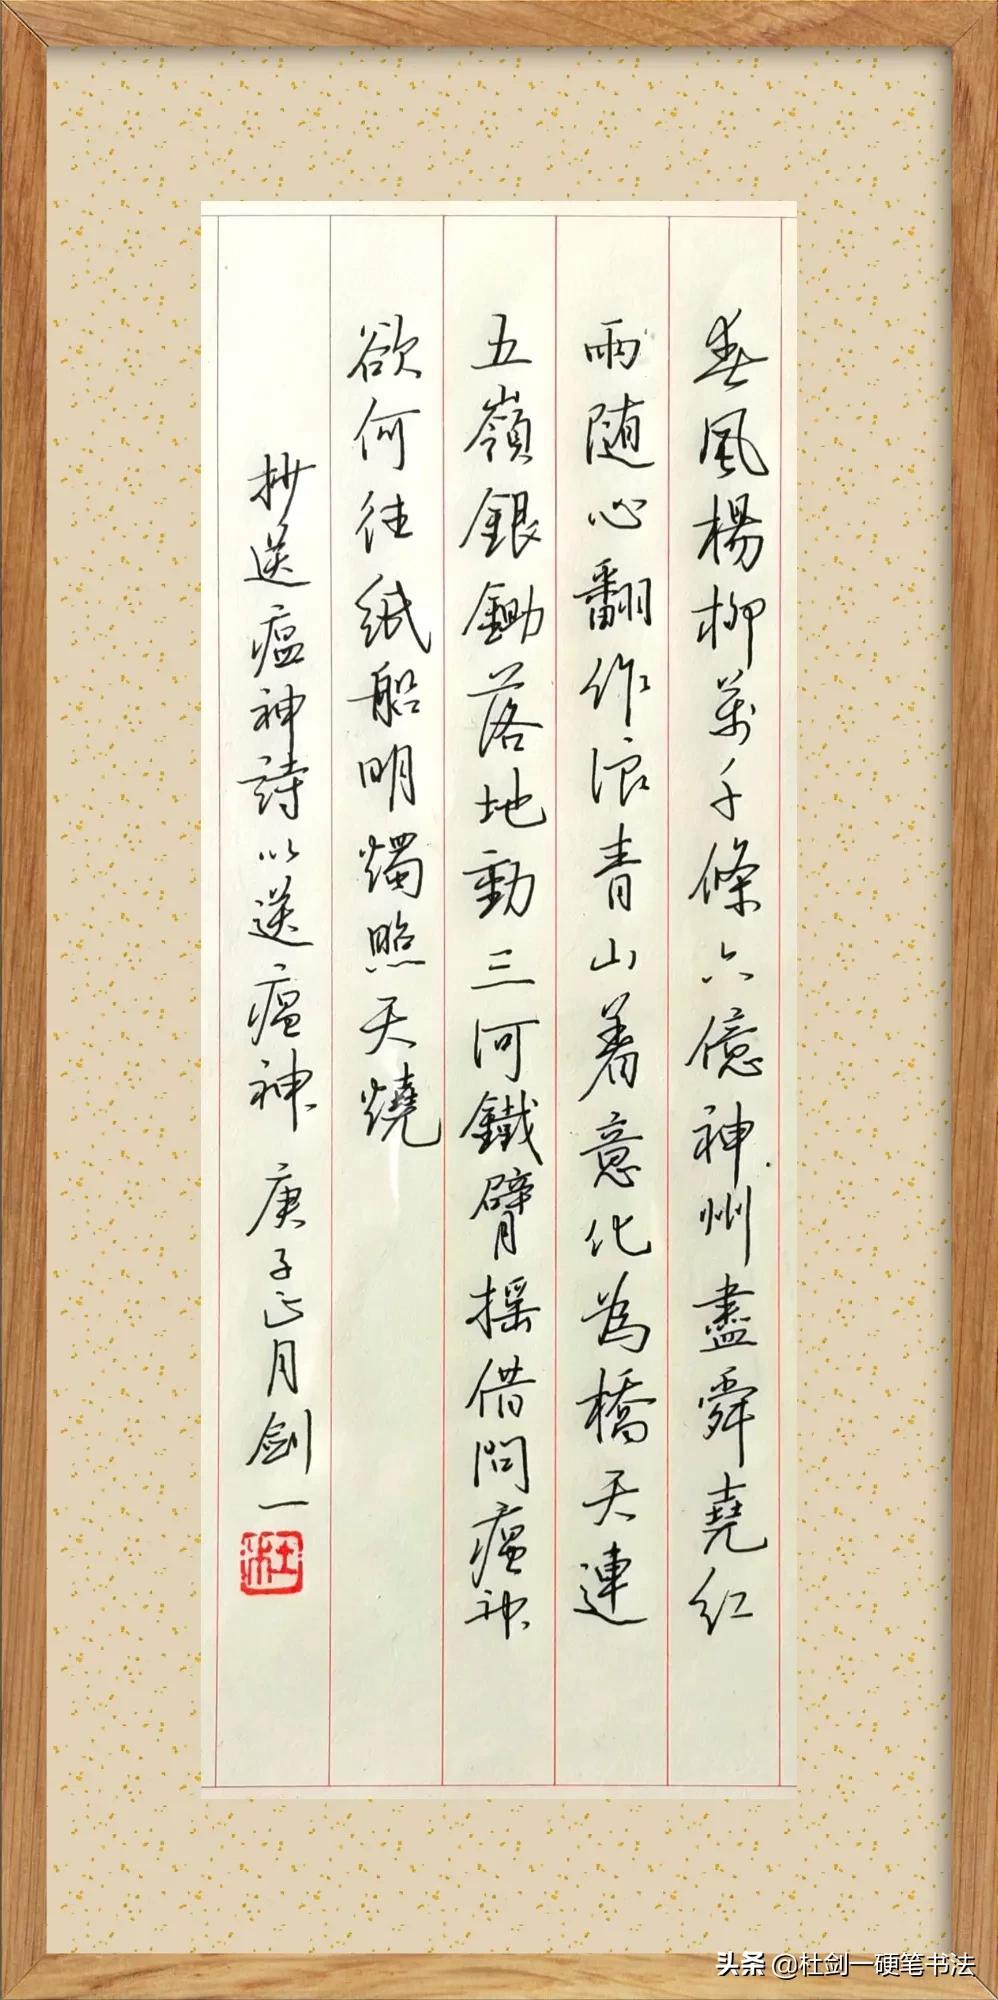 春風楊柳萬千條六億神州盡舜堯紅
雨随心翻作浪青山着意化為橋天連
五嶺銀鋤落地動三河鐵臂摇借問瘟神
欲何往纸船明燭照天燒
抄送瘟神詩以送瘟神 庚子正月剑一
杜
头条 @杜剑一硬笔书法